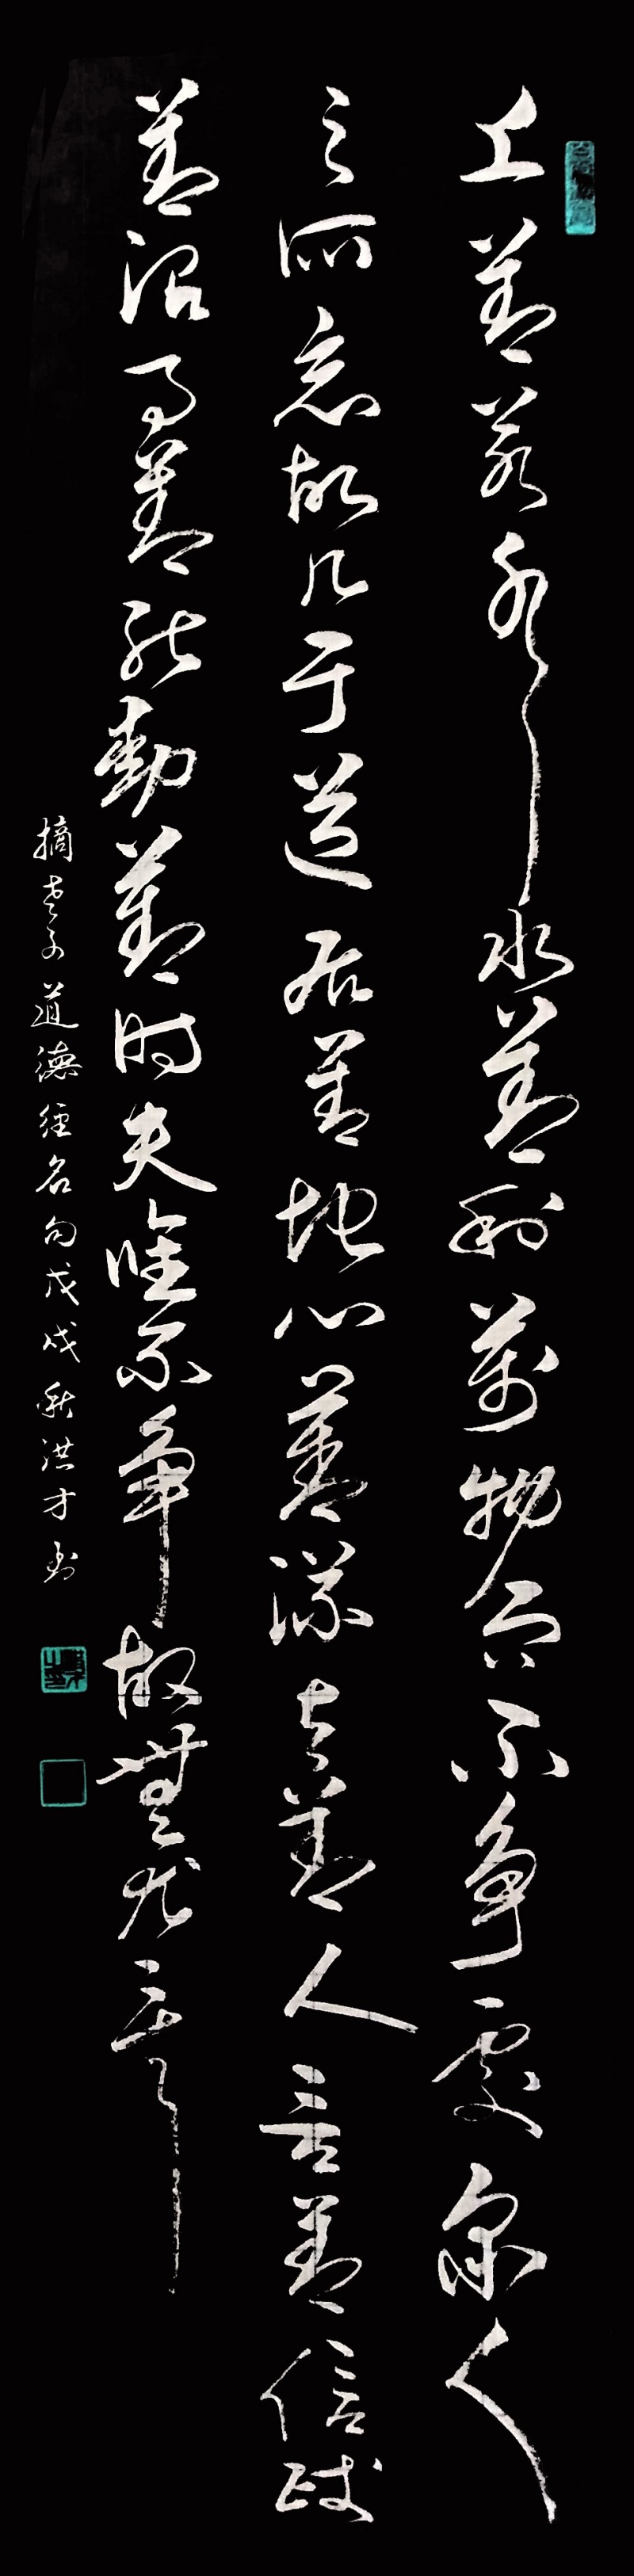 上善若水水善利萬物而不爭處衆人
之所惡故几于道居善地心善渊与善人言善信政
善治事善能動善时夫唯不爭故無尤矣
摘老子道德經名句戊戌秋洪才书